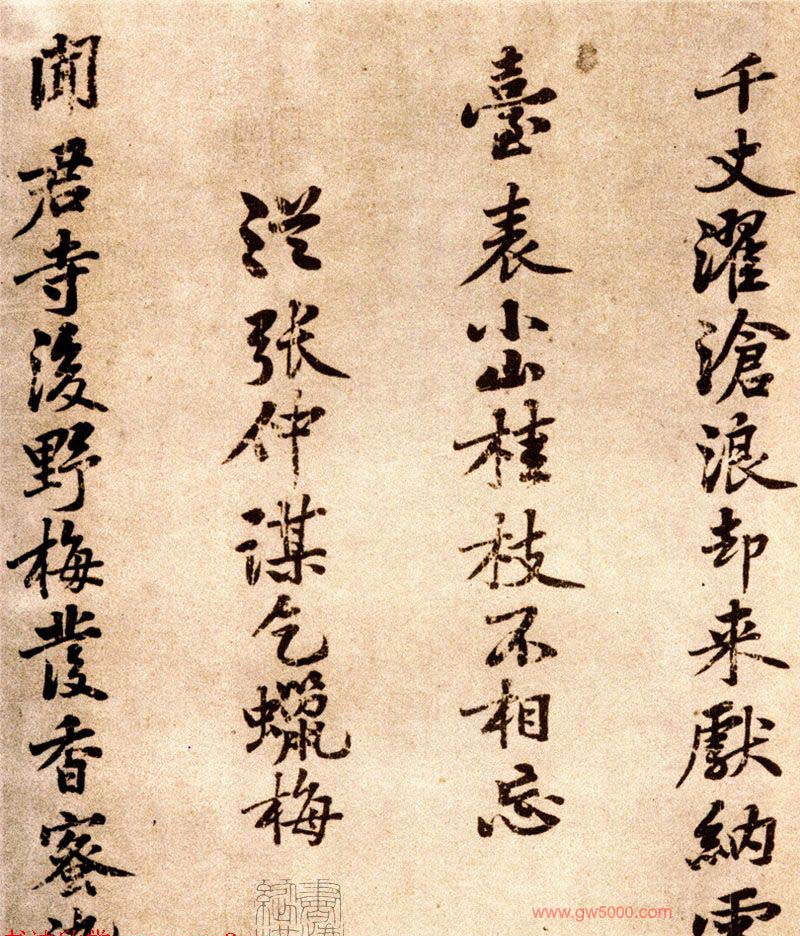 千丈濯滄浪却来獻納雲
臺表小山桂枝不相忘
従张仲謀乞蠟梅
聞君寺後野梅發香蜜
www.gw5000.com